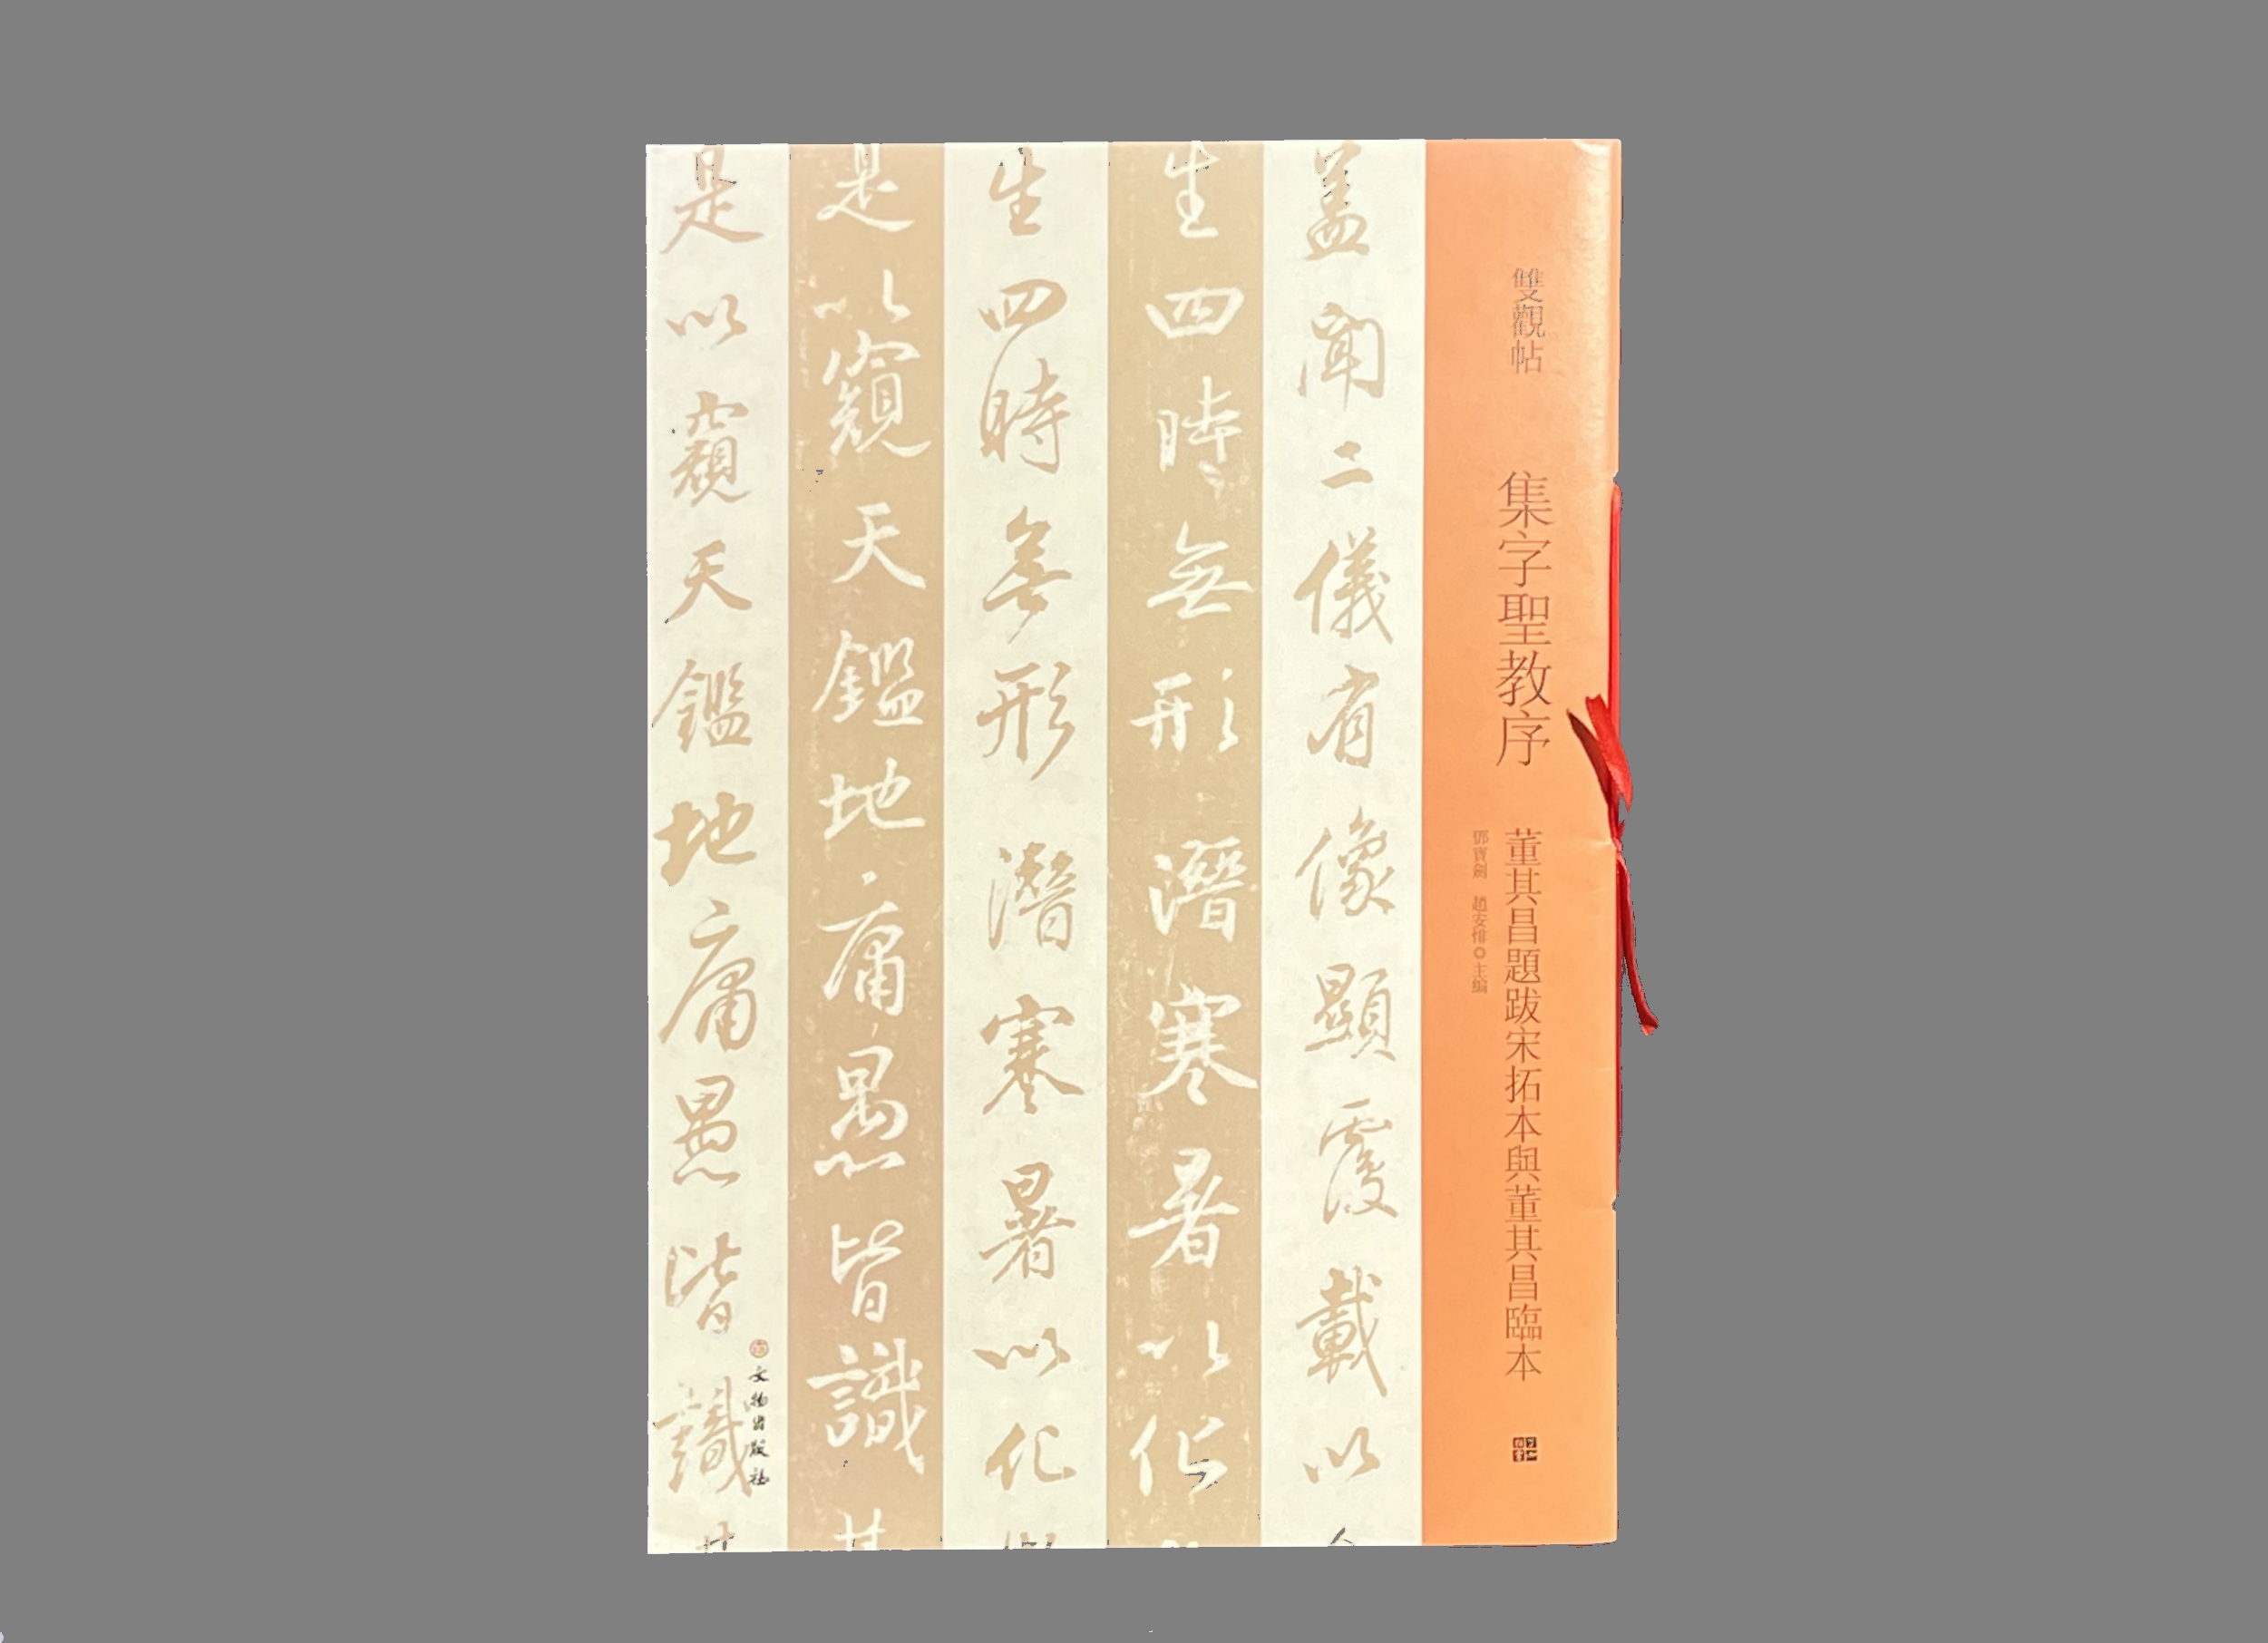 雙觀帖
集字聖教序
董其昌題跋宋拓本與董其昌臨本
鄧寶劍 趙安悱◎主編
蓋聞二儀有像顯覆載以
生四時無形潛寒暑以化
生四時無形潛寒暑以化
是以窺天鑑地庸愚皆識其
是以窺天鑑地庸愚皆識
文物出版社